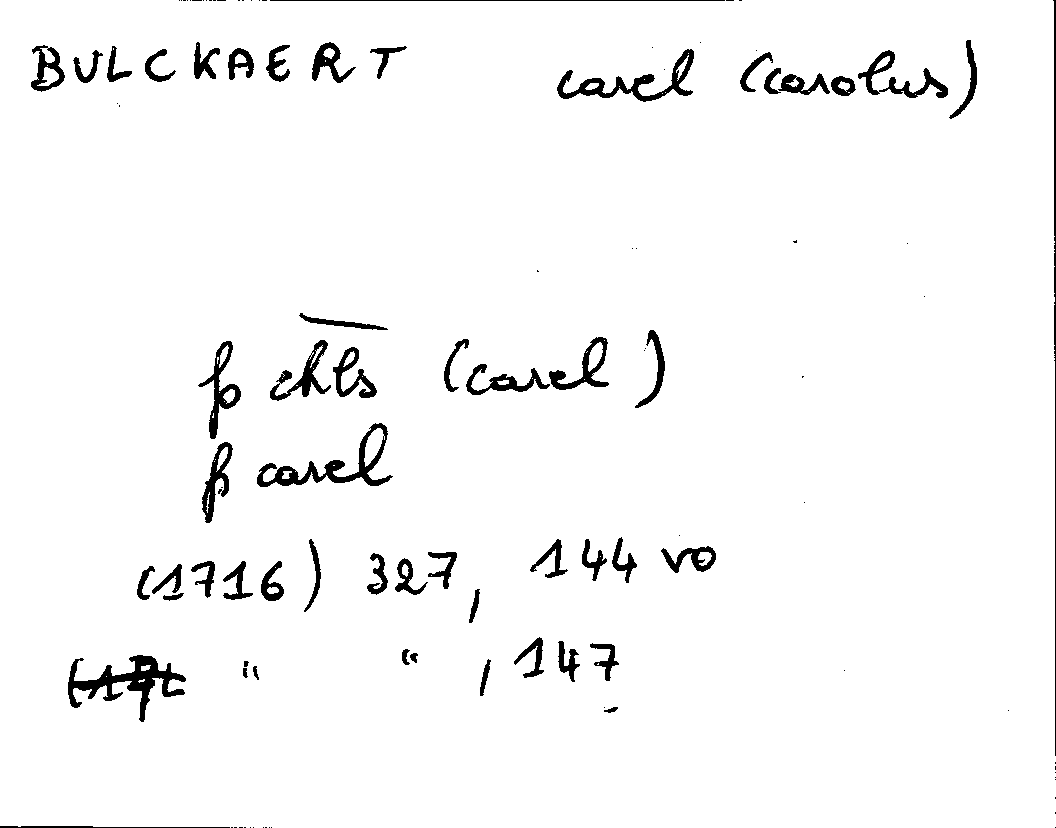 BULCKAERT carel (carolus)
fs chls (carel)
fs carel
(1716) 327, 144 vo
" " , 147